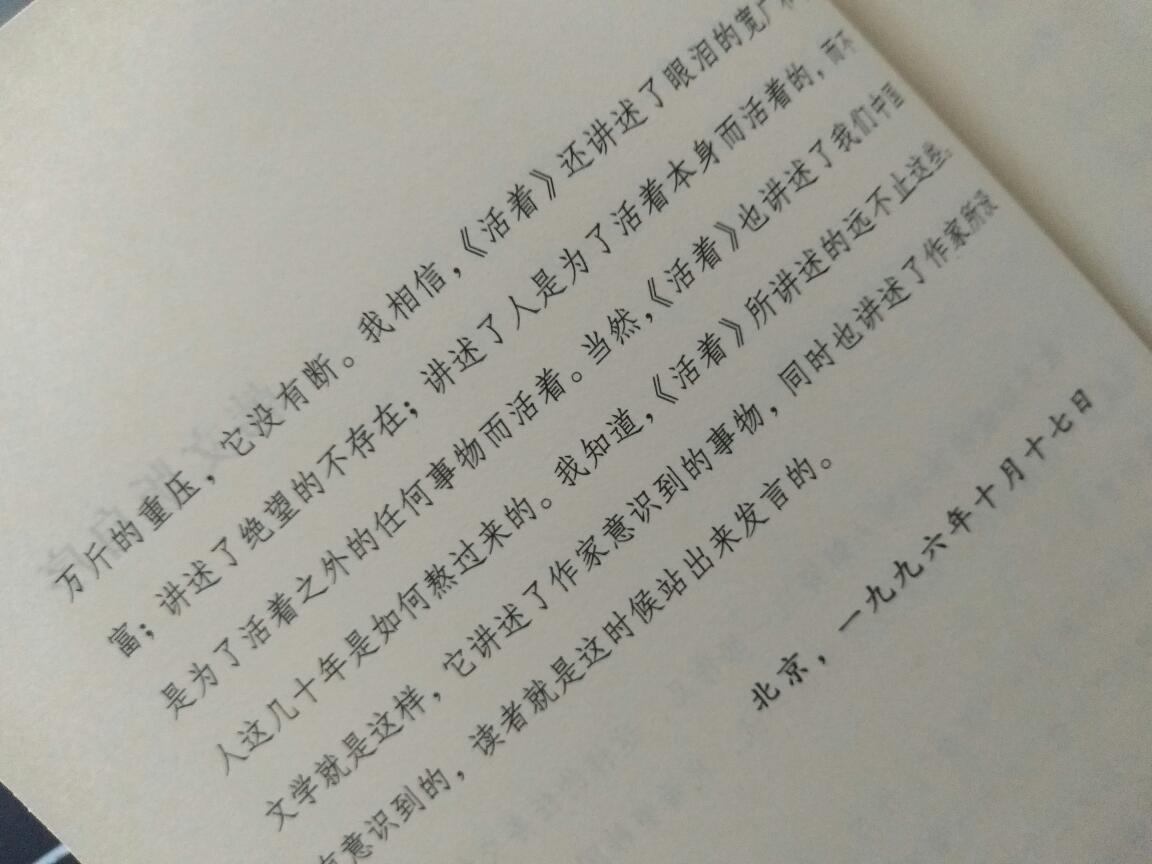 万斤的重压，它没有断。我相信，《活着》还讲述了眼泪的宽广
富；讲述了绝望的不存在；讲述了人是为了活着本身而活着的，而不
是为了活着之外的任何事物而活着。当然，《活着》也讲述了我们中国
人这几十年是如何熬过来的。我知道，《活着》所讲述的远不止这些。
文学就是这样，它讲述了作家意识到的事物，同时也讲述了作家所没
有意识到的，读者就是这时候站出来发言的。
北京，一九九六年十月十七日